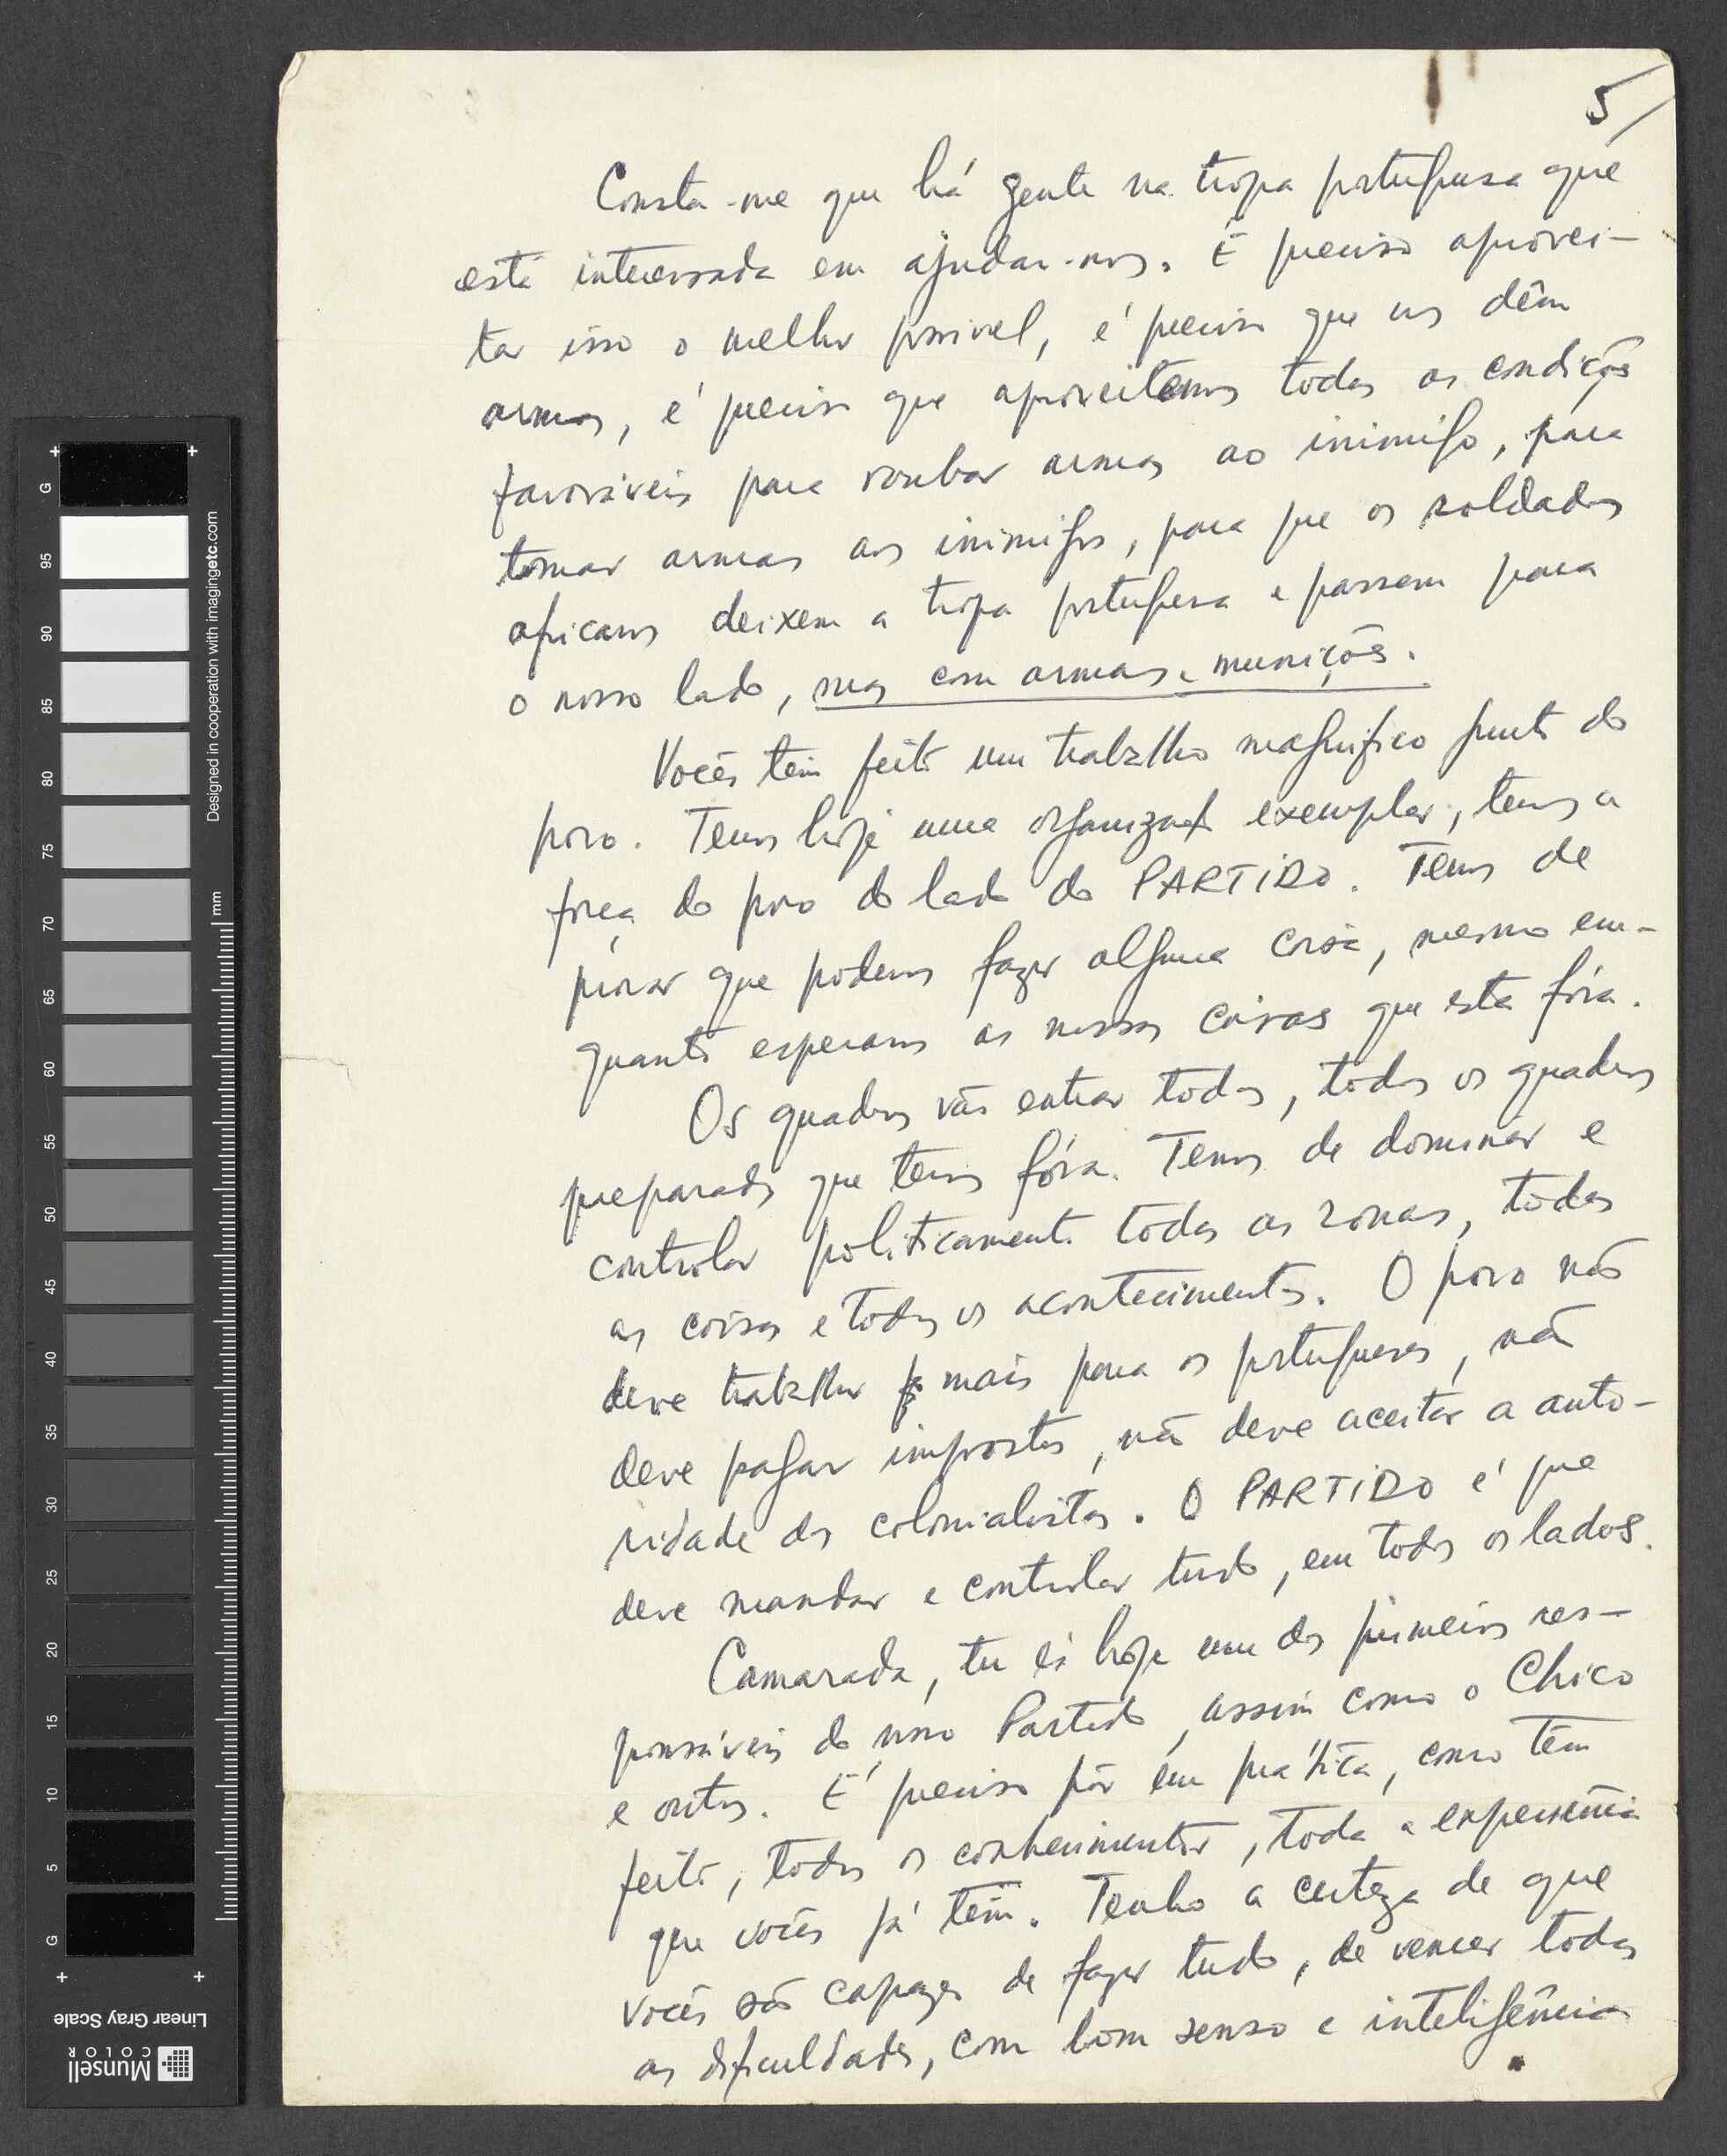 5/
Consta-me que há gente na tropa portuguesa que
está interessada em ajudar-nos. É preciso aprovei-
tar isso o melhor possivel, é preciso que nos dêm
armas, é preciso que aproveitemos todas as condições
favoráveis para roubar armas ao inimigo, para
tomar armas aos inimigos, para que os soldados
africanos deixem a tropa portuguesa e passem para
o nosso lado, mas com armas e munições.
Vocês têm feito um trabalho magnifico junto do
povo. Temos hoje uma organização exemplar, temos a
força do povo do lado do PARTIDO. Temos de
provar que podemos fazer alguma coisa, mesmo en-
quanto esperamos as nossas coisas que esta fóra.
Os quadros vão entrar todos, todos os quadros
preparados que temos fóra. Temos de dominar e
controlar politicamente todas as zonas, todas
as coisas e todos os acontecimentos. O povo não
deve trabalhar mais para os portugueses, não
deve pagar impostos, não deve aceitar a auto-
ridade dos colonialistas. O PARTIDO é que
deve mandar e controlar tudo, em todos os lados.
Camarada, tu és hoje um dos primeiros res-
ponsáveis do nosso Partido, assim como o Chico
e outros. É preciso pôr em prática, como têm
feito, todos os conhecimentos, toda a experiência
que vocês já têm. Tenho a certeza de que
vocês são capazes de fazer tudo, de vencer todas
as dificuldades, com bom senso e inteligência
Designed in cooperation with imagingetc.com
mm
G
95
90
85
80
75
70
65
60
55
50
45
40
35
30
25
20
15
10
5
G
Linear Gray Scale
Munsell
COLOR